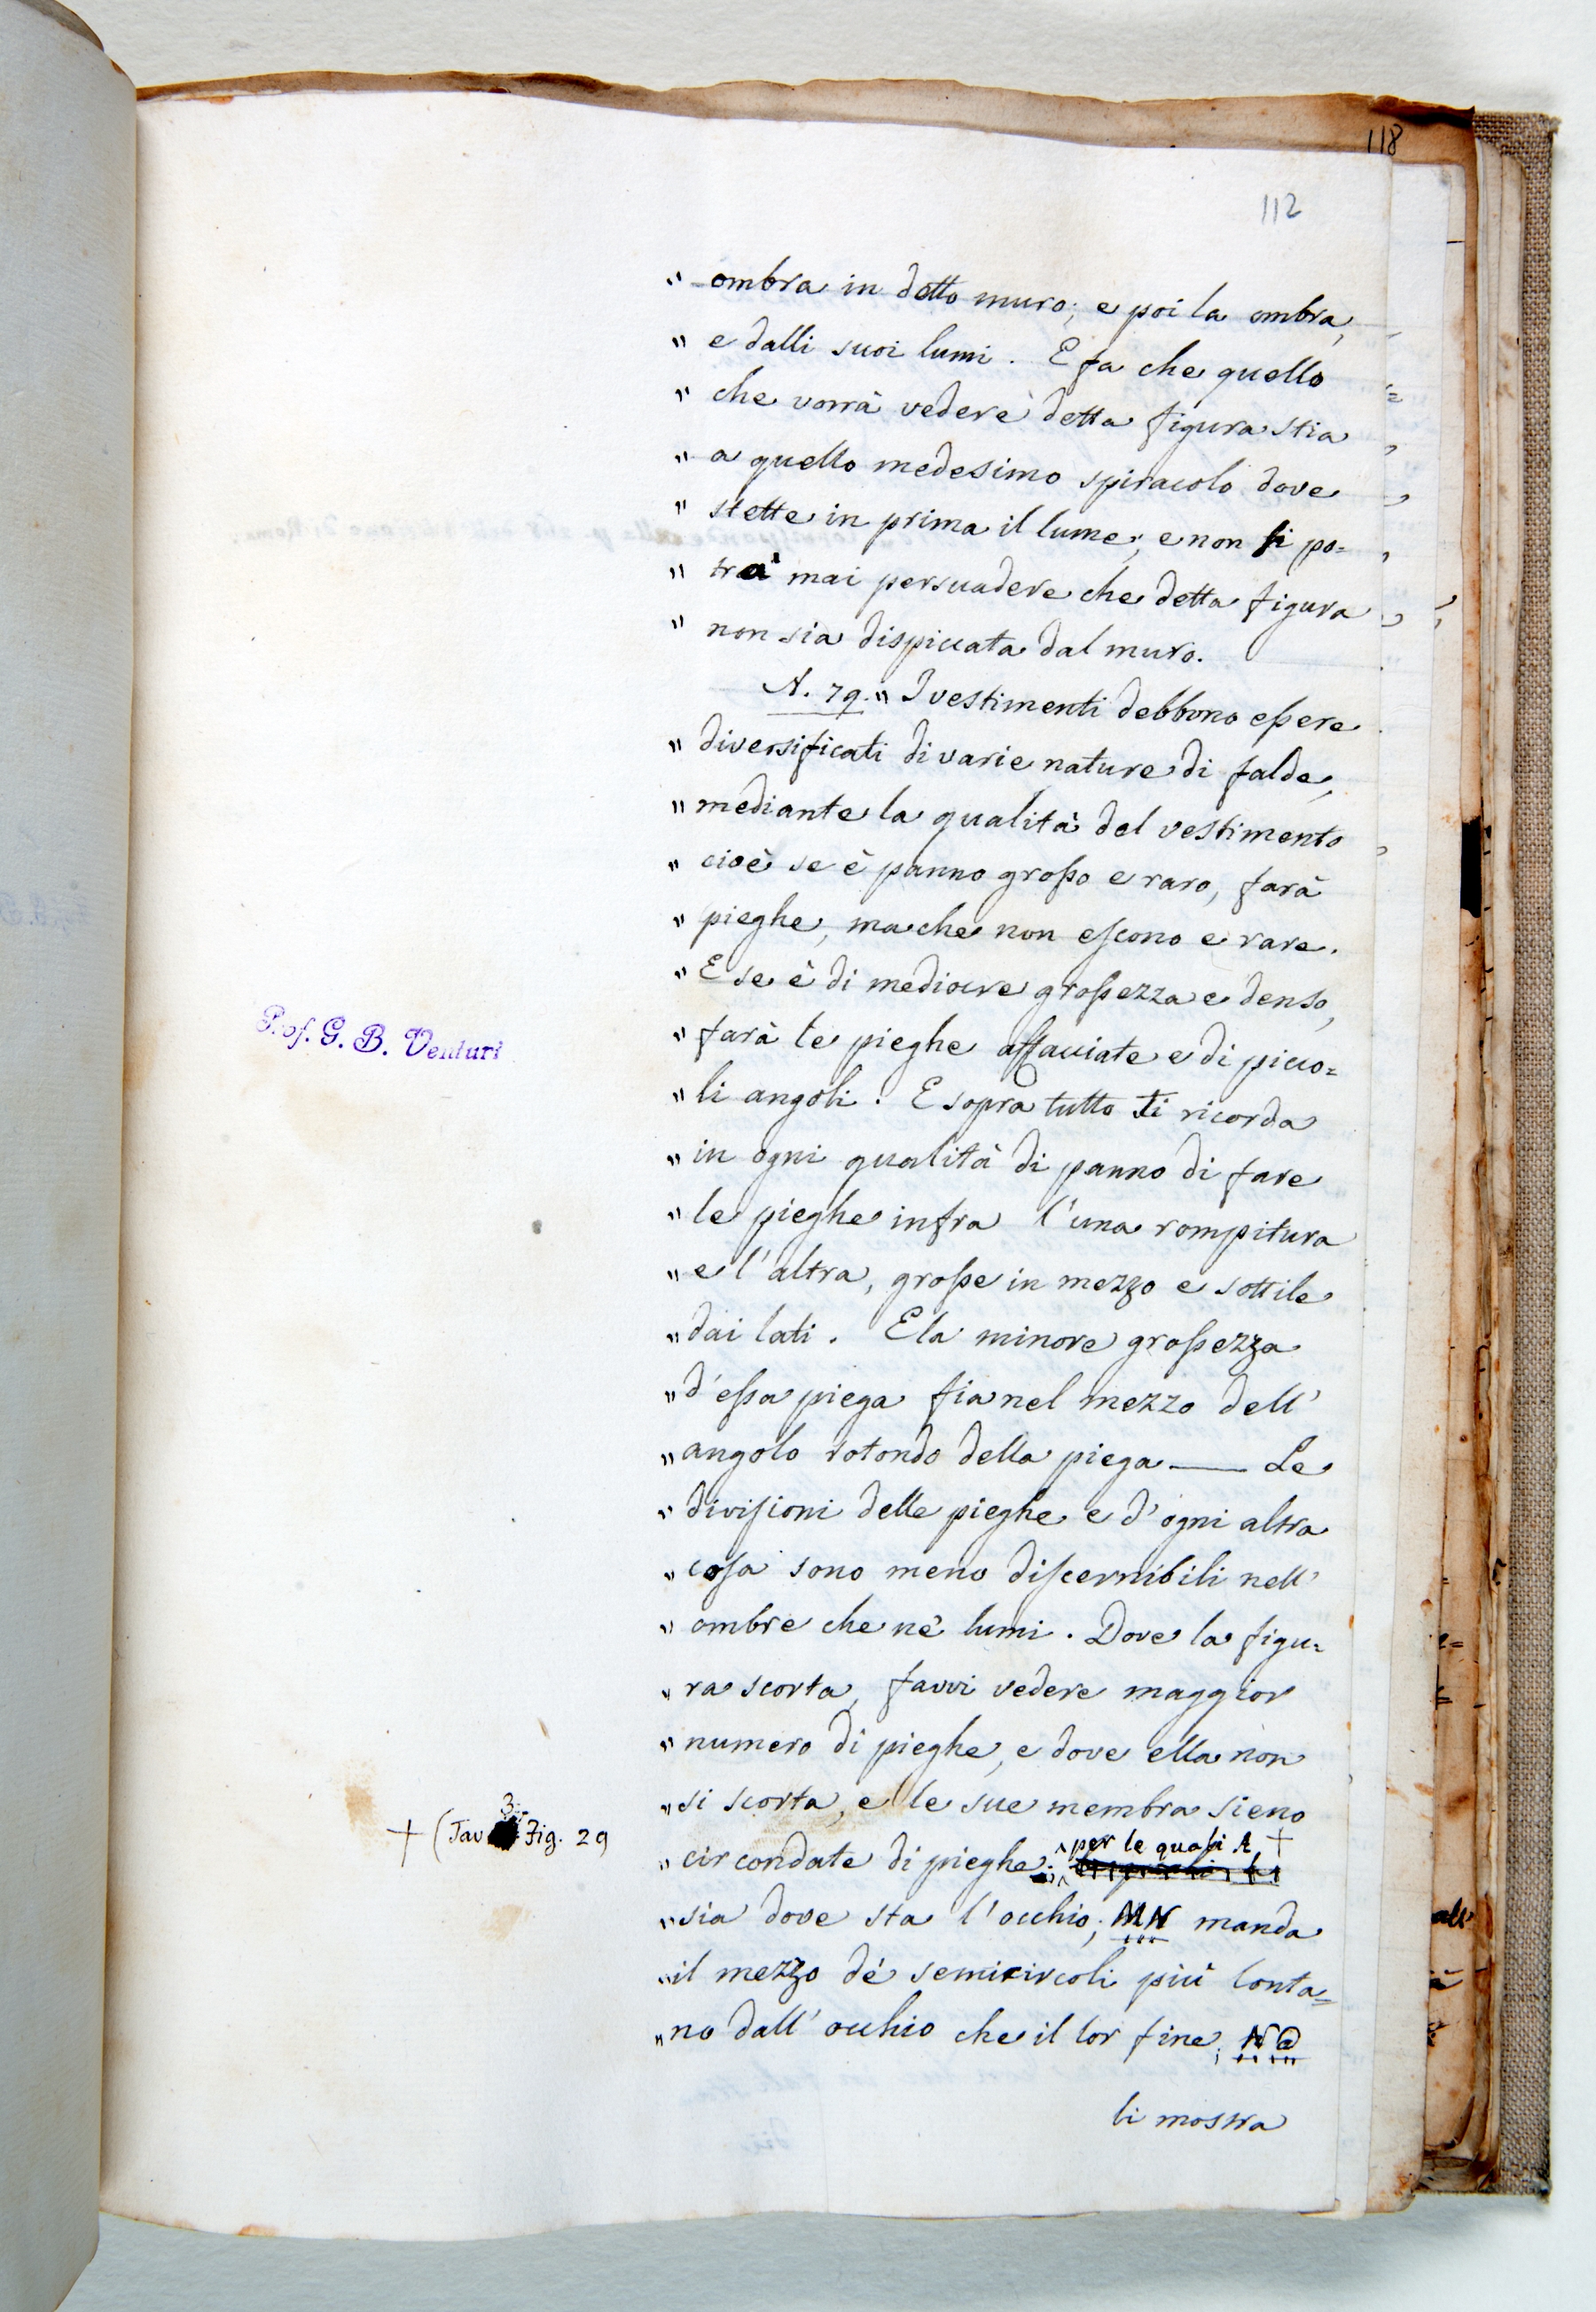 118
112
" ombra in detto muro; e poi la ombra,
" e dalli suoi lumi. E fa che quello
" che vorrà vedere detta figura stia
" a quello medesimo spiracolo dove
" stette in prima il lume; e non si po=
" trà mai persuadere che detta figura
" non sia dispiccata dal muro.
A. 79. " I vestimenti debbono eſsere
" diversificati di varie nature di falde,
" mediante la qualità del vestimento
" cioè se è panno groſso e raro, farà
" pieghe, ma che non eſcono e rare.
" E se è di mediocre groſsezza e denso,
" farà le pieghe affacciate e di picco=
" li angoli. E sopra tutto ti ricorda
" in ogni qualità di panno di fare
" le pieghe infra l'una rompitura
" e l'altra, groſse in mezzo e sottile
" dai lati. E la minore groſsezza
" d'eſsa piega fia nel mezzo dell'
" angolo rotondo della piega — Le
" diviſioni delle pieghe e d'ogni altra
" coſa sono meno diſcernibili nell'
" ombre che ne' lumi. Dove la figu=
" ra scorta, favvi vedere maggior
" numero di pieghe, e dove ella non
" si scorta, e le sue membra sieno
" circondate di pieghe; per le quaſi A +
" sia dove sta l'occhio; MN manda
" il mezzo de' semicircoli più lonta=
" no dall'occhio che il lor fine; NO
li mostra
Prof. G. B. Venturi
+ (Tav 3 Fig. 29